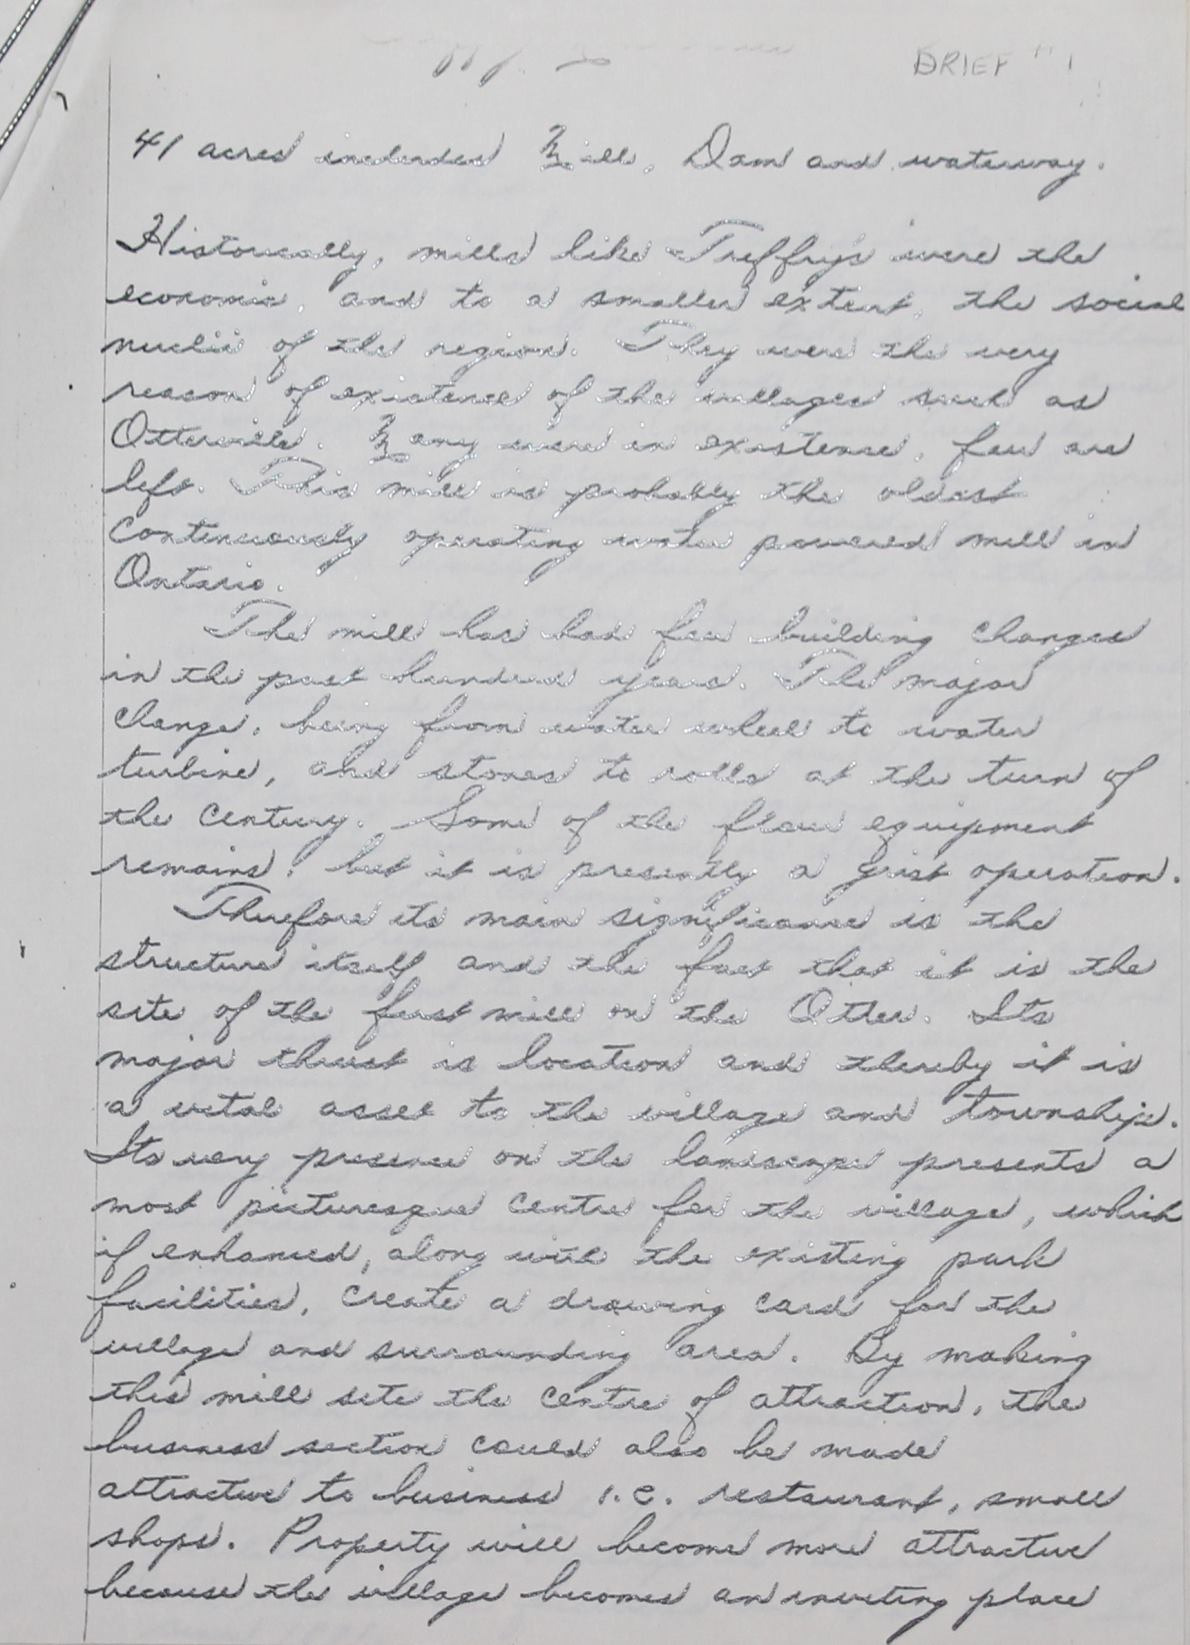 BRIEF #1
41 acres includes Mill, Dam and waterway.
Historically, mills like Treffry's were the
economic, and to a smaller extent, the social
nuclii of the region. They were the very
reason of existence of the villages such as
Otterville. Many were in existence, few are
left. This mill is probably the oldest
continuously operating water powered mill in
Ontario.
The mill has had few building changes
in the past hundred years. The major
change, being from water wheel to water
turbine, and stones to rolls at the turn of
the century. Some of the flour equipment
remains, but it is presently a grist operation.
Therefore its main significance is the
structure itself and the fact that it is the
site of the first mill on the Otter. Its
major thrust is location and thereby it is
a vital asset to the village and township.
Its very presence on the landscape presents a
most picturesque centre for the village, which
if enhanced, along with the existing park
facilities, create a drawing card for the
village and surrounding area. By making
this mill site the centre of attraction, the
business section could also be made
attractive to business i.e. restaurant, small
shops. Property will become more attractive
because the village becomes an inviting place